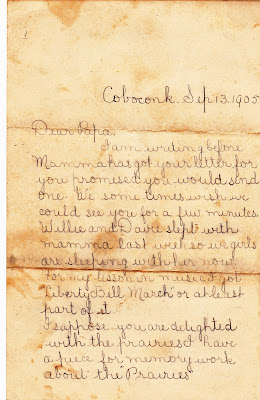 Coboconk. Sep. 13. 1905
Dear Papa.
I am writing before
Mamma has got your letter for
you promised you would send
one. We some times wish we
could see you for a few minutes.
Willie and Davie slept with
mamma last week so we girls
are sleeping with her now.
for my lesson in music I got
"Liberty Bell March" or at least
part of it
I suppose you are delighted
with the prairies I have
a piece for memory work
about the "Prairies"